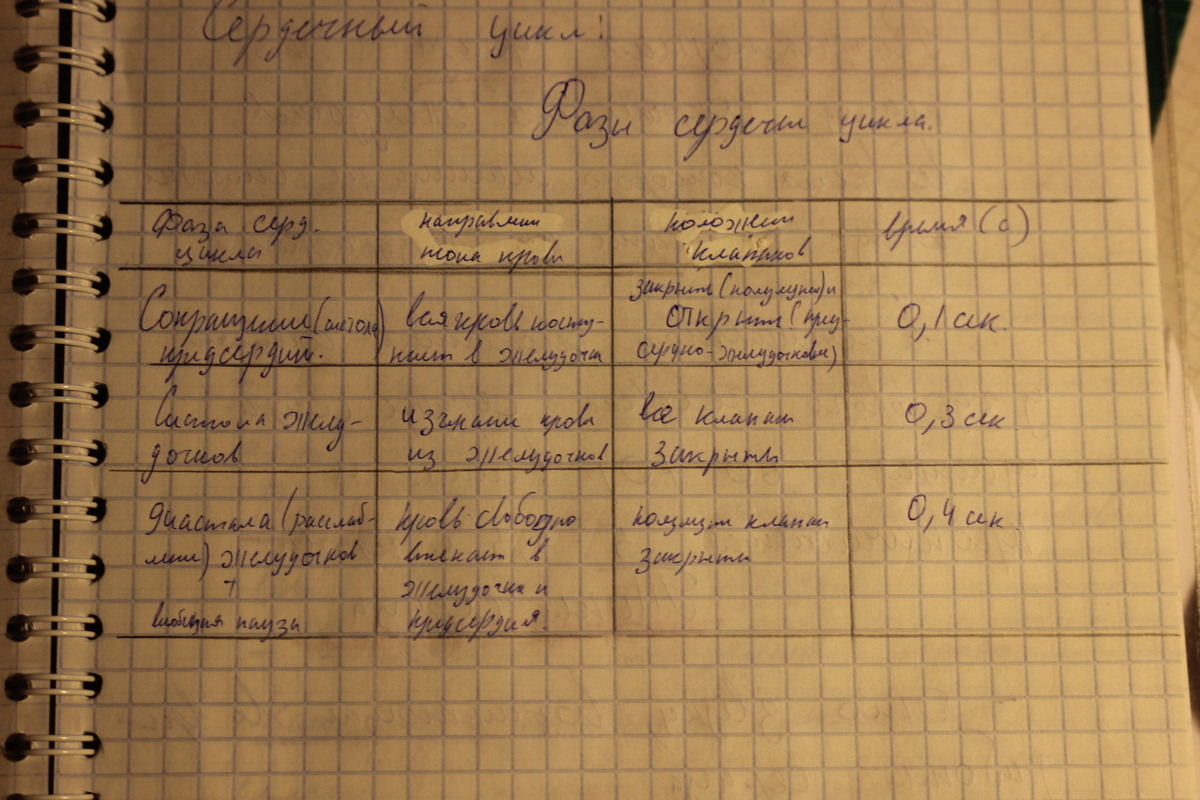 Сердечный цикл:
Фазы сердечн цикла.
Фаза серд.
цикла
направлении
тока крови
положении
клапанов
время (с)
Сокращении (систола)
предсердий.
вся кровь посту-
пает в желудочки
закрыты (полулунные) и
открыты (пред-
сердно-желудочковые)
0,1 сек.
Систола желу-
дочков
изгнании крови
из желудочков
все клапаны
закрыты
0,3 сек.
диастола (расслаб-
лении) желудочков
+
всеобщая пауза
кровь свободно
втекает в
желудочки и
предсердия.
клапаны
закрыты
0,4 сек.